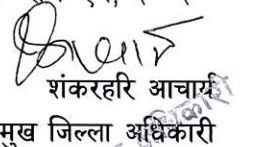 शंकरहरि आचार्य
मुख जिल्ला अधिकारी